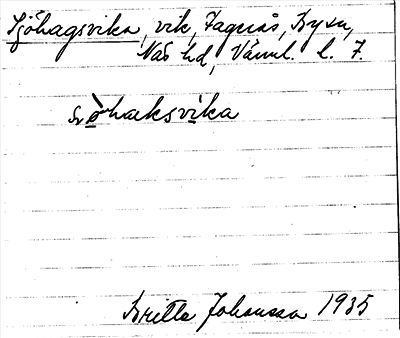 Sjöhagsvika, vik, Fagerås, By sn,
Näs hd, Värml. l. 7.
sjòhaksvika
Britta Johansson 1935